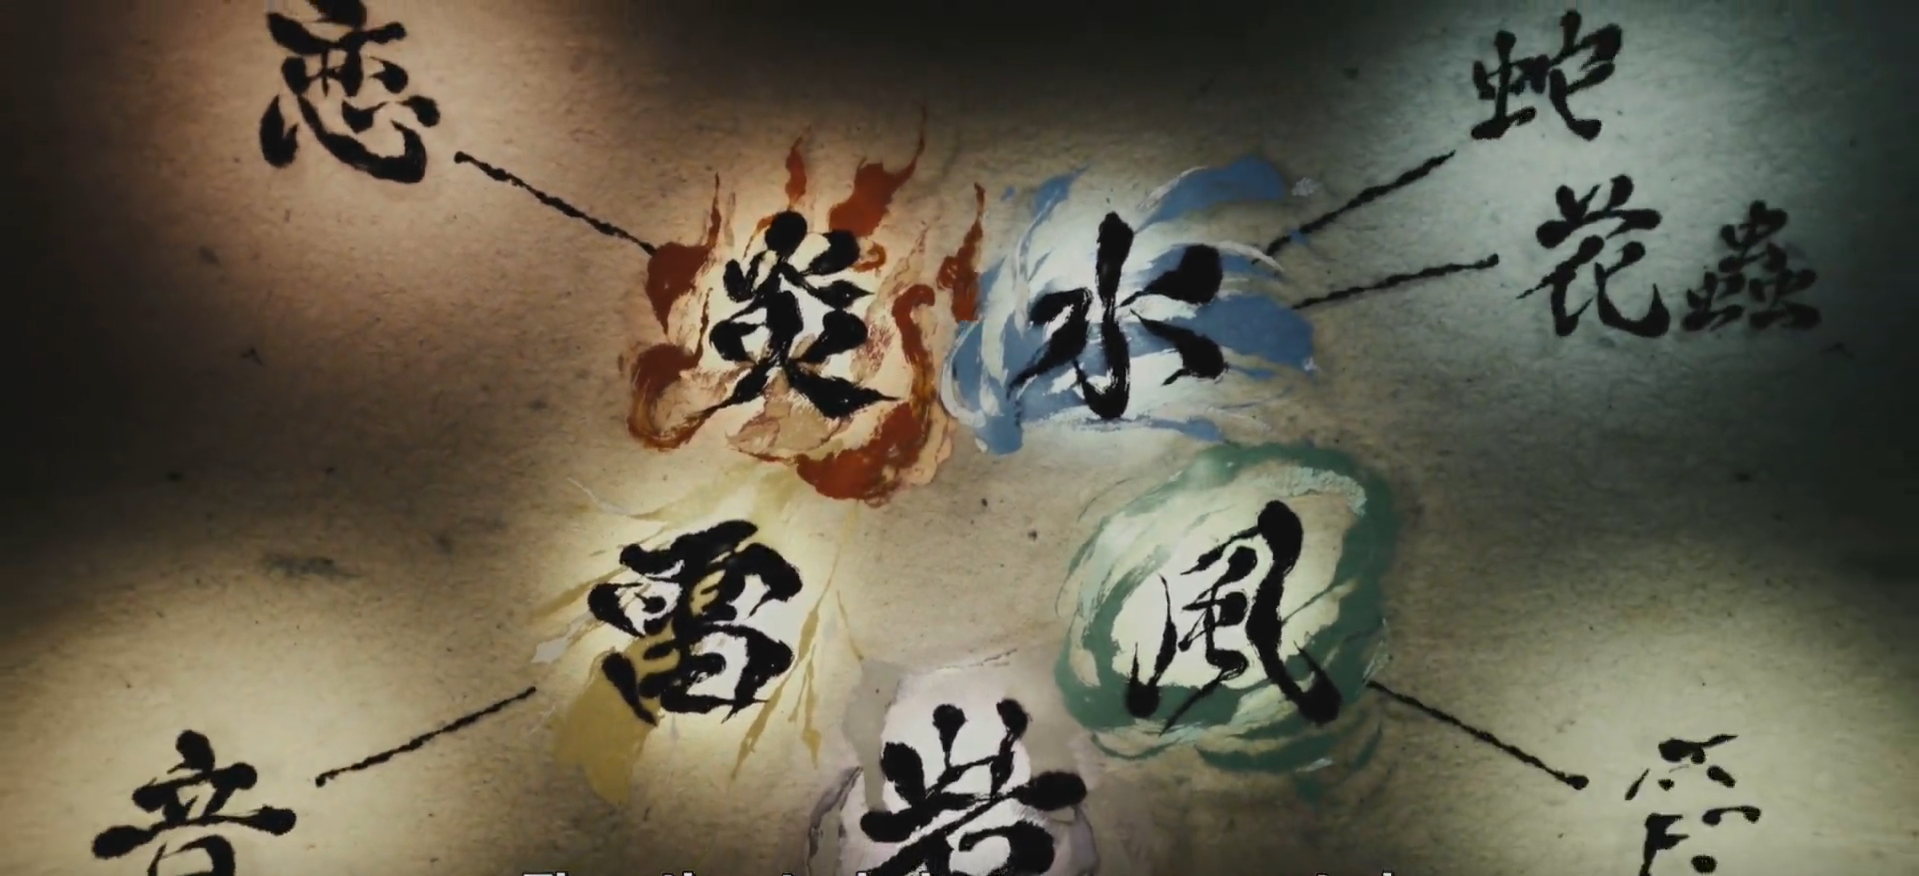 恋
蛇
炎 水
花 蟲
雷 風
岩
音